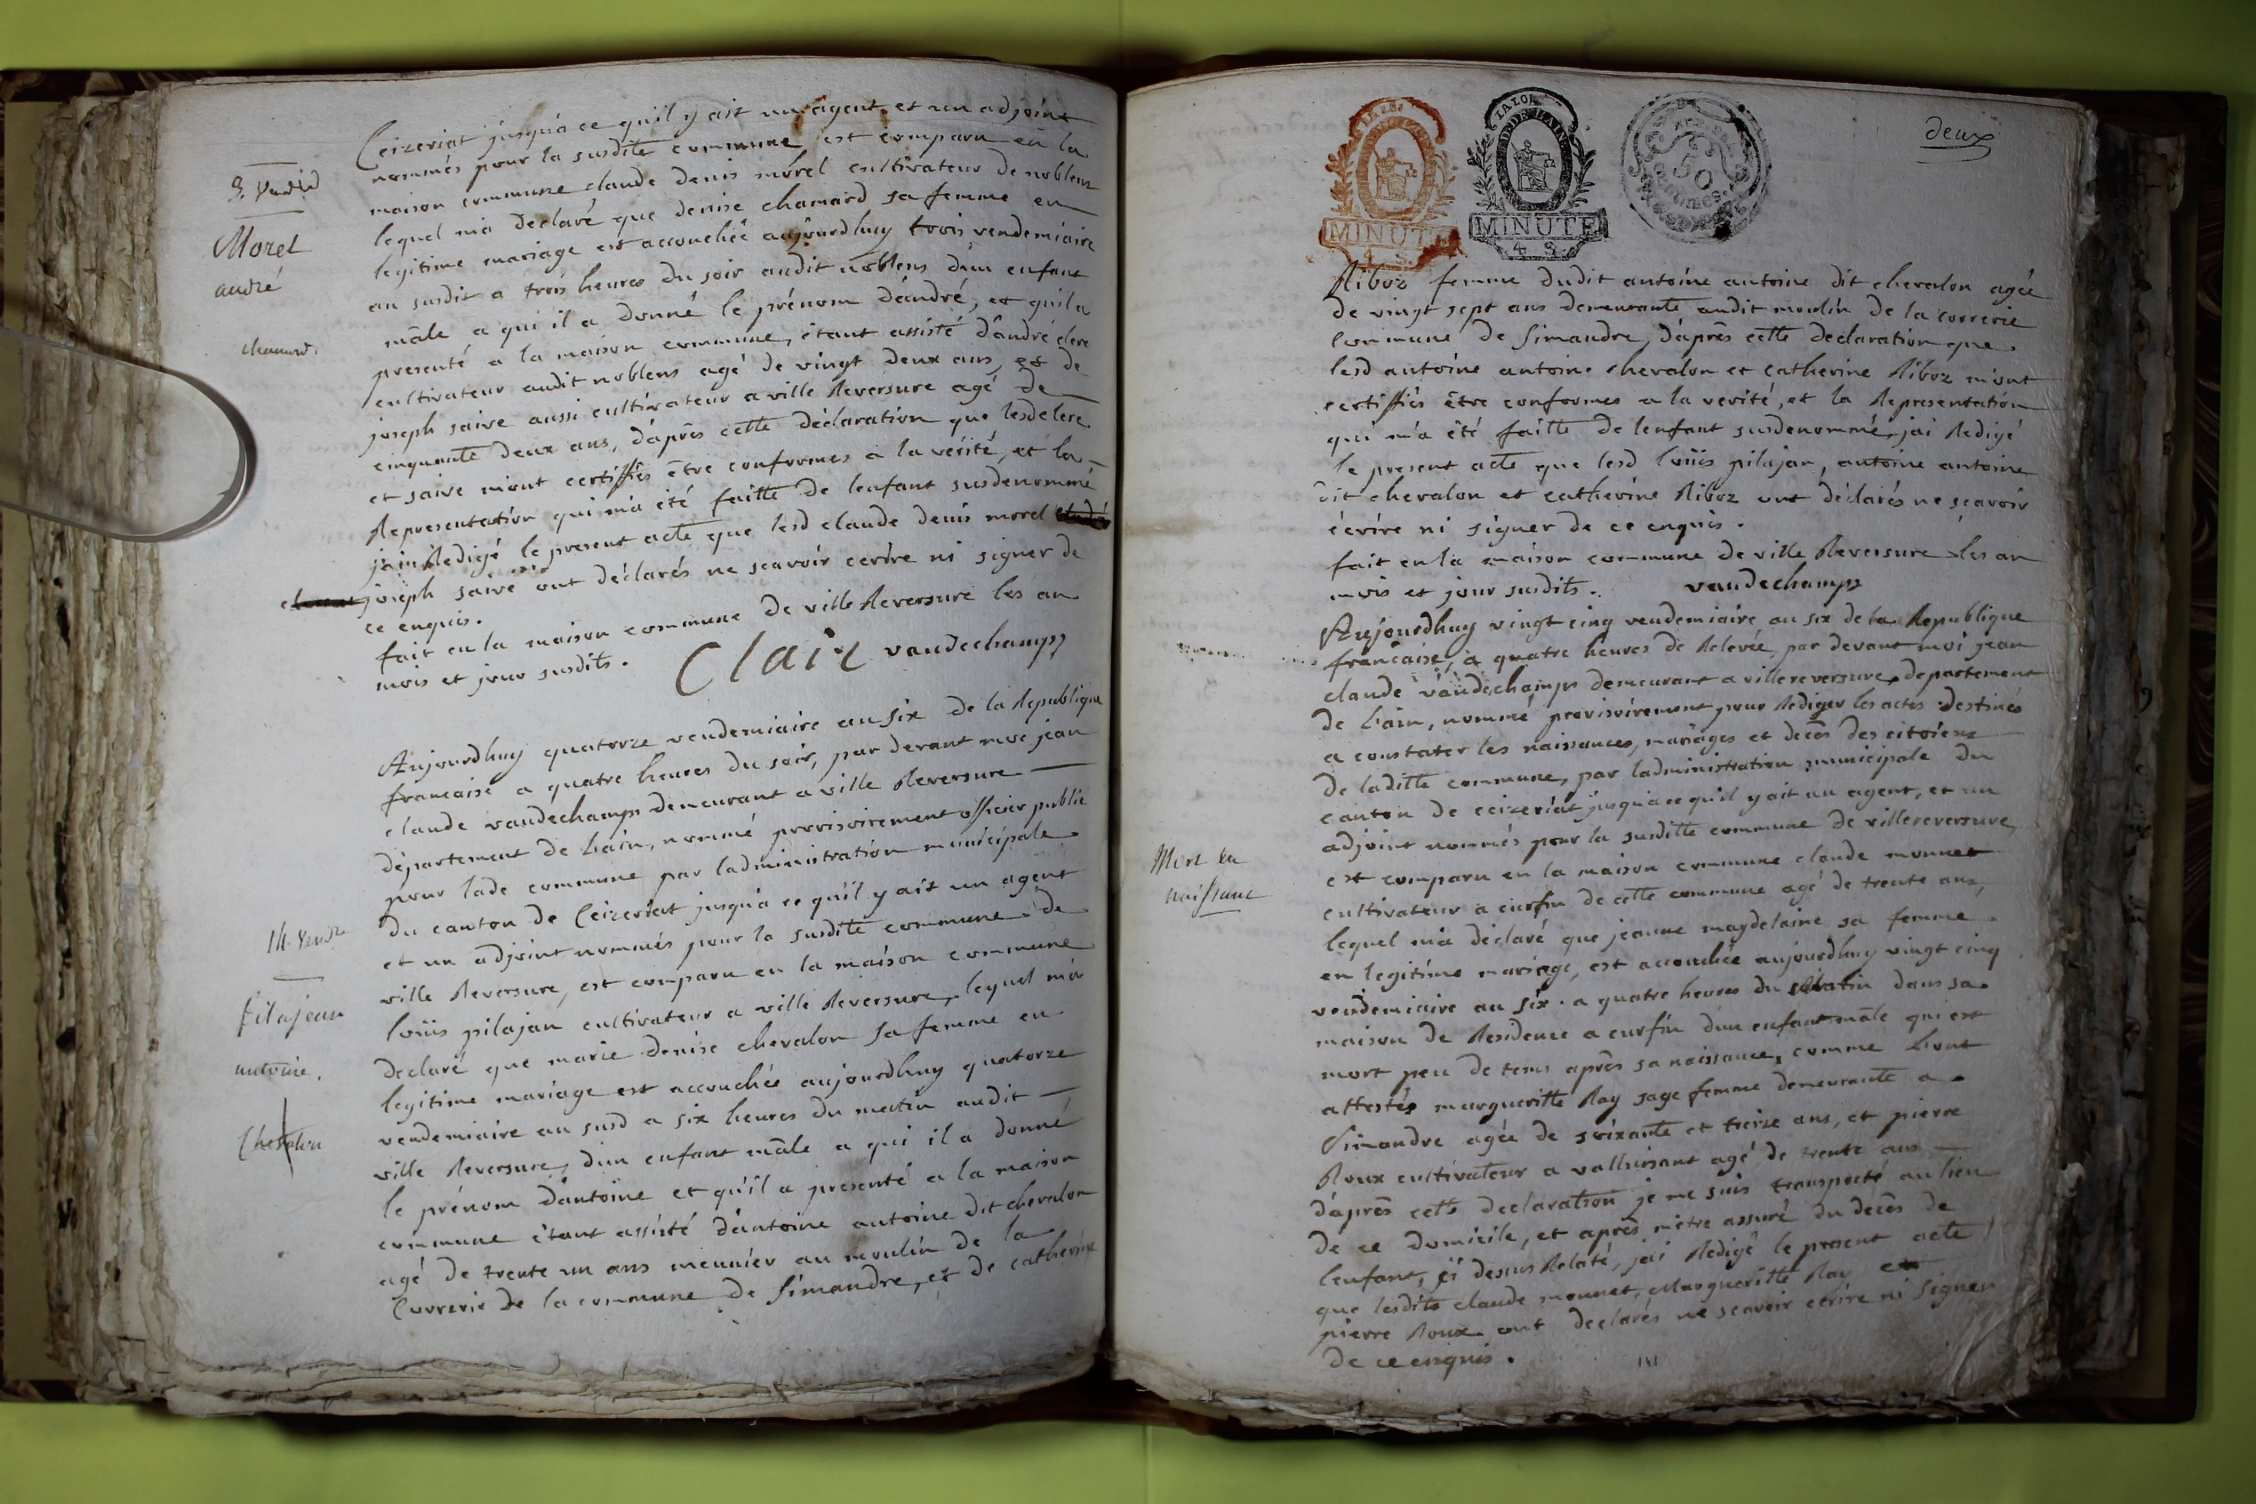 3. Vend.
Morel
andré
chamard.
Ceizeriat jusqua ce quil y ait un agent et un adjoint
nommés pour la susditte commune est comparu en la
maison commune claude denis morel cultivateur de noblens
lequel m'a déclaré que denise chamard sa femme en
legitime mariage est accouchée aujourdhuy trois vendemiaire
an susdit a trois heures du soir audit noblens dun enfant
mâle a qui il a donné le prénom d'andré, et quil a
presenté a la maison commune, étant assisté d'andré clere
cultivateur audit noblens agé de vingt deux ans, et de
joseph saive aussi cultivateur a ville Reversure agé de
cinquante deux ans, d'aprês cette déclaration que lesd clere
et saive m'ont certiffiés être conformes a la vérité, et la
Representation qui m'a été faitte de lenfant susdenommé
j'ai Redigé le present acte que lesd claude denis morel
joseph saive ont déclarés ne scavoir ecrire ni signer de
ce enquis.
fait en la maison commune de ville Reversure les an
mois et jour susdits. Clair vaudechamps
14. Vendre
pilajean
antoine.
Chevalon
Aujourdhuy quatorze vendemiaire an six de la Republique
francaise a quatre heures du soir, par devant moi jean
claude vaudechamps demeurant a ville Reversure
département de Lain, nommé provisoirement officier public
pour lade commune par ladministration municipale
du canton de Ceizeriat jusqu'a ce qu'il y ait un agent
et un adjoint nommés pour la susditte commune de
ville Reversure, est comparu en la maison commune
loüis pilajan cultivateur a ville Reversure, lequel m'a
declaré que marie denise chevalon sa femme en
legitime mariage est accouchée aujourdhuy quatorze
vendemiaire an susd a six heures du matin audit
ville Reversure, d'un enfant mâle a qui il a donné
le prénom d'antoine et qu'il a presenté a la maison
commune étant assisté d'antoine antoine dit chevalon
agé de trente un ans meunier au moulin de la
Correrie de la commune de Simandre, et de catherine
LA LOI
DEP. DE L'AIN
MINUTE
4 S.
MINUTE
4 S.
50
deux
Riboz femme dudit antoine antoine dit chevalon agée
de vingt sept ans demeurante audit moulin de la correrie
commune de Simandre, d'aprês cette declaration que
lesd antoine antoine chevalon et catherine Riboz m'ont
certiffiés être conformes a la verité, et la Representation
qui m'a été faitte de lenfant susdenommé, jai Redigé
le present acte que lesd loüis pilajan, antoine antoine
dit chevalon et catherine Riboz ont déclarés ne scavoir
écrire ni signer de ce enquis.
fait en la maison commune de ville Reversure les an
mois et jour susdits. vaudechamps
Mort en
naissant
Aujourdhuy vingt cinq vendemiaire an six de la Republique
francaise, a quatre heures de Relevée, par devant moi jean
claude vaudechamps demeurant a villereversure, departement
de Lain, nommé provisoirement pour Rediger les actes destinés
a constater les naissances, mariages et decès des citoïens
de laditte commune, par ladministration municipale du
canton de ceizeriat jusqu'a ce qu'il y ait un agent, et un
adjoint nommés pour la susditte commune de villereversure
est comparu en la maison commune claude monnet
cultivateur a curfin de cette commune agé de trente ans,
lequel m'a déclaré que jeanne magdelaine sa femme
en legitime mariage, est accouchée aujourdhuy vingt cinq
vendemiaire an six a quatre heures du matin dans sa
maison de Residence a curfin d'un enfant mâle qui est
mort peu de tems aprês sa naissance, comme L'ont
attestés margueritte Ray sage femme demeurante a
Simandre agée de soixante et treize ans, et pierre
Roux cultivateur a valluisant agé de trente ans
d'aprês cette declaration je me suis transporté au lieu
de ce domicile, et aprês m'être assuré du decês de
lenfant ci dessus Relaté, jai Redigé le present acte
que lesdits claude monnet, Margueritte Ray et
pierre Roux ont declarés ne scavoir ecrire ni signer
de ce enquis.